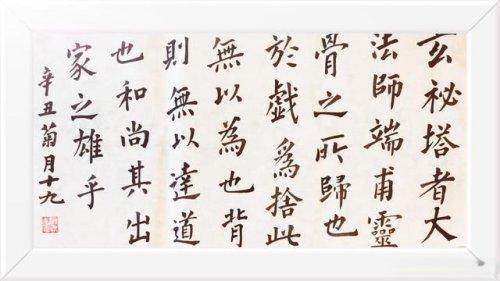 玄祕塔者大
法師端甫靈
骨之所歸也
於戲為捨此
無以為也背
則無以達道
也和尚其出
家之雄乎
辛丑菊月十九